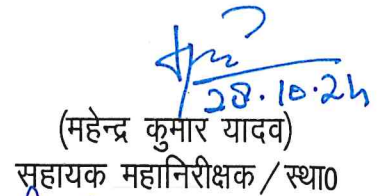 28.10.24
(महेन्द्र कुमार यादव)
सहायक महानिरीक्षक / स्था0